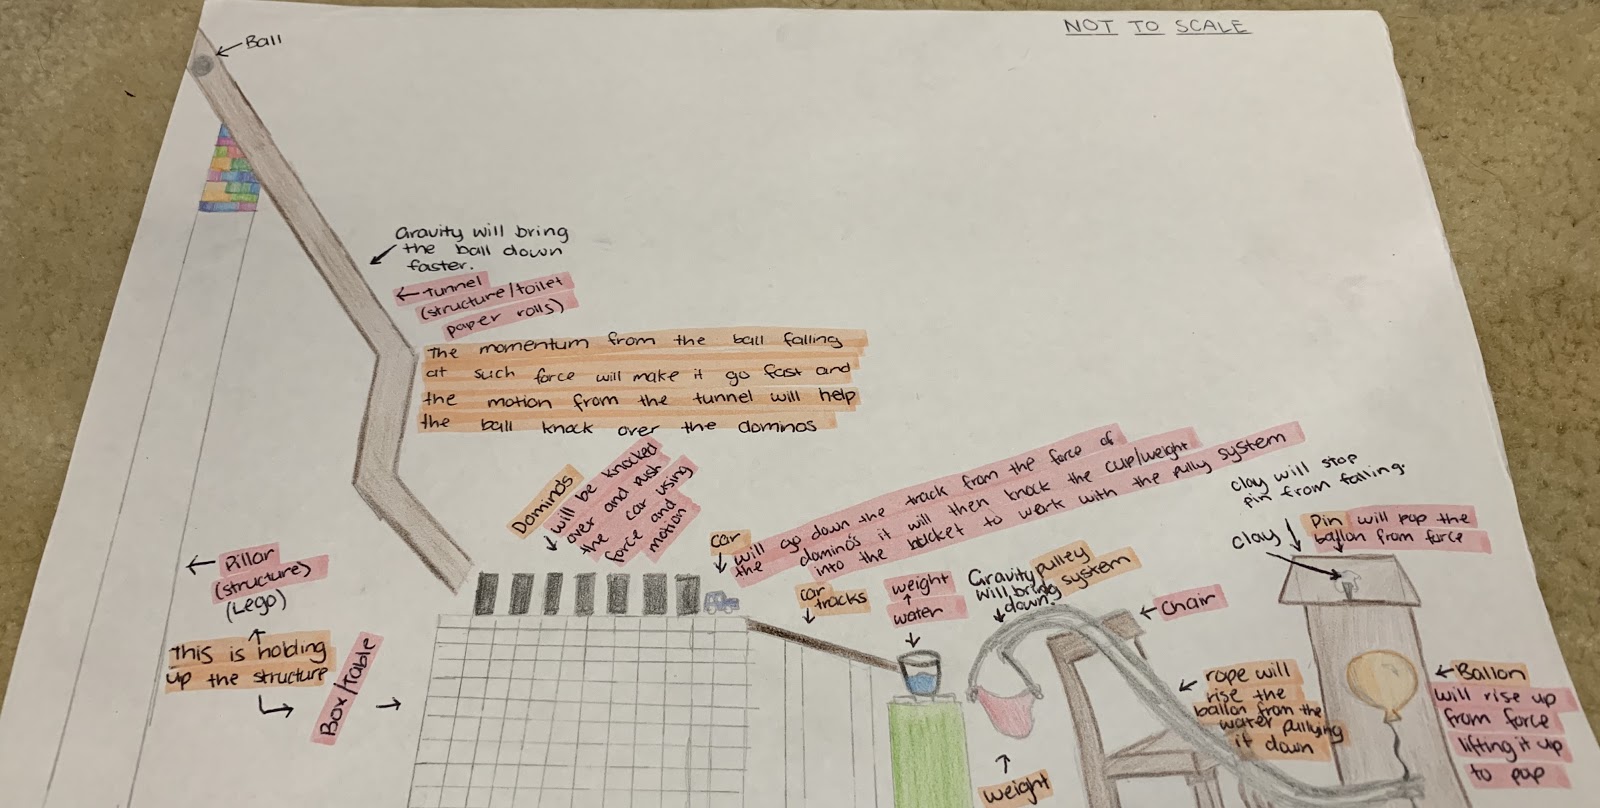 NOT TO SCALE
Ball
Gravity will bring
the ball down
faster.
tunnel
(structure/toilet
paper rolls)
The momentum from the ball falling
at such force will make it go fast and
the motion from the tunnel will help
the ball knock over the dominos
Dominos
will be knocked
over and push
the car using
force and
motion
car
will go down the track from the force of
the domino's it will then knock the cup/weight
into the bucket to work with the pully system
clay will stop
pin from falling.
clay
Pin will pop the
ballon from force
Pillar
(structure)
(Lego)
This is holding
up the structure
Box/Table
car
tracks
weight
water
Gravity
will bring
down.
pulley
system
chair
weight
rope will
rise the
ballon from the
water pullying
it down
Ballon
will rise up
from force
lifting it up
to pop